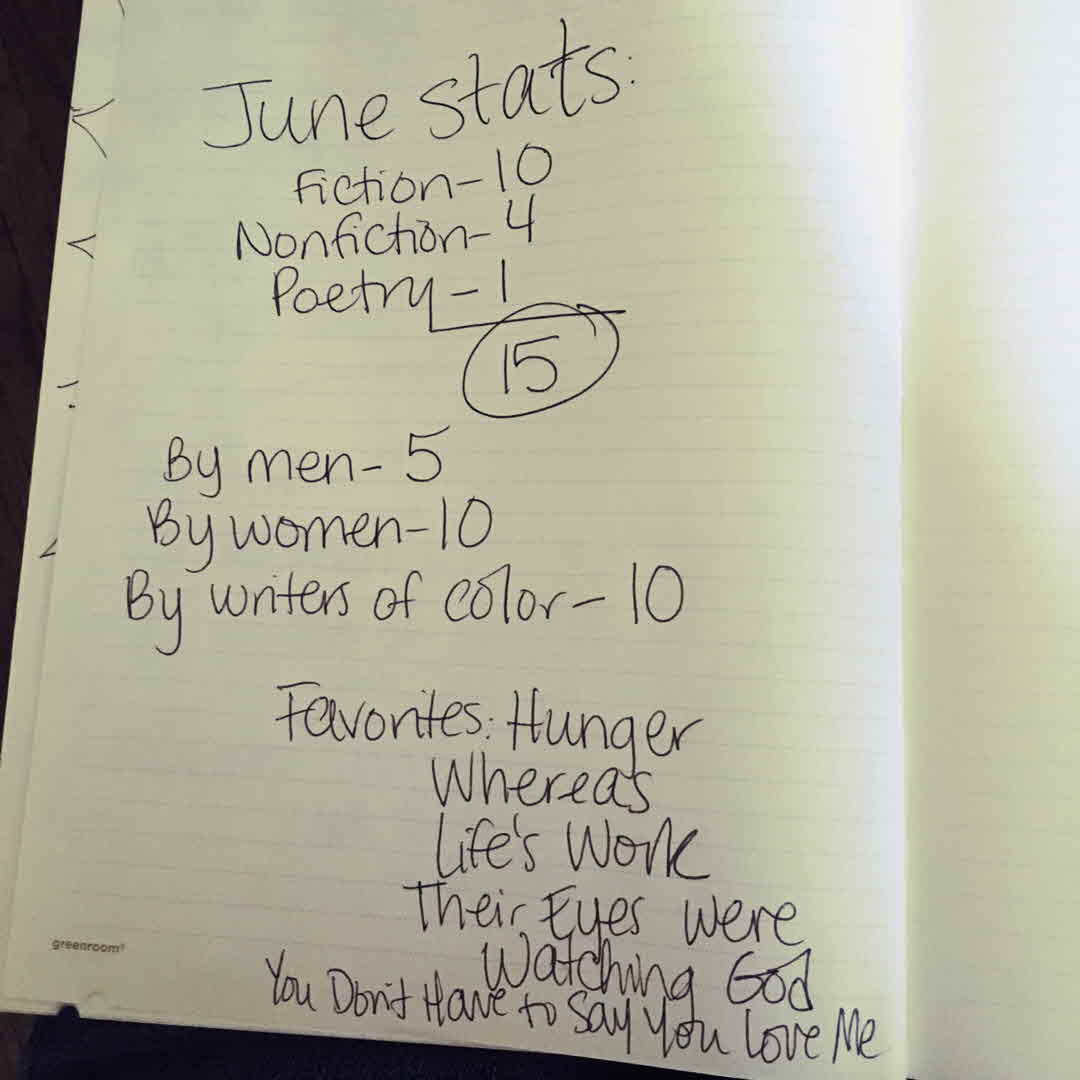 June stats:
Fiction-10
Nonfiction-4
Poetry-1
15
By men-5
By women-10
By writers of color-10
Favorites: Hunger
Whereas
Life's Work
Their Eyes were
Watching God
You Don't Have to Say You Love Me
greenroom®